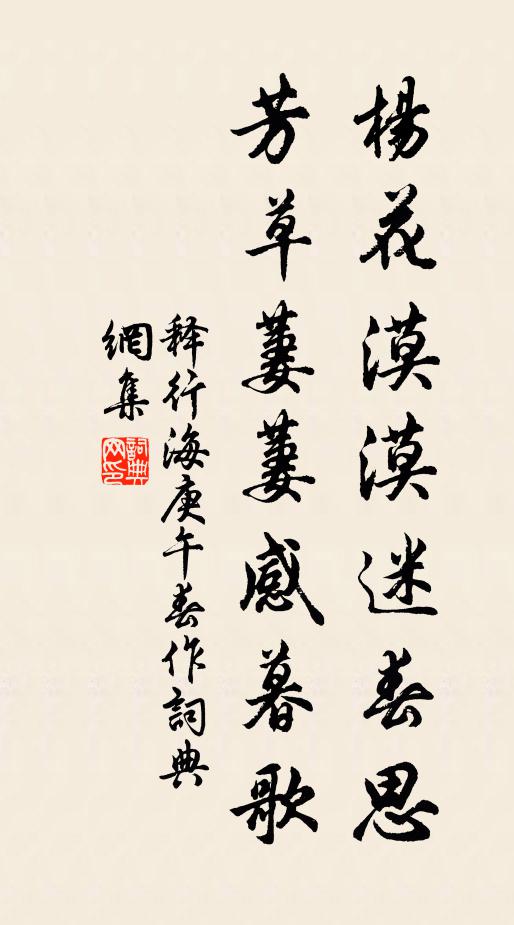 楊花漠漠迷春思
芳草萋萋感暮歌
释行海庚午春作詞典
網集
詞典
网印